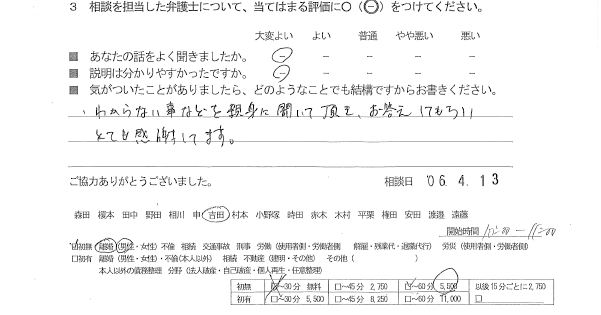 3 相談を担当した弁護士について、当てはまる評価に○（⊖）をつけてください。
大変よい よい 普通 やや悪い 悪い
■ あなたの話をよく聞きましたか。 － － － － －
■ 説明は分かりやすかったですか。 － － － － －
■ 気がついたことがありましたら、どのようなことでも結構ですからお書きください。
・わからない事などを親身に聞いて頂き、お答えしてもらい
とても感謝してます。
ご協力ありがとうございました。 相談日 '06.4.13
森田 榎本 田中 野田 相川 申 吉田 村本 小野塚 時田 赤木 木村 平栗 権田 安田 渡邉 遠藤
開始時間 10:00－11:00
☑初無 離婚（男性・女性）不倫 相続 交通事故 刑事 労働（使用者側・労働者側 解雇・残業代・退職代行） 労災（使用者側・労働者側）
□初有 離婚（男性・女性）・不倫（本人以外） 相続 不動産（建明・その他） その他（ ）
本人以外の債務整理 分野（法人破産・自己破産・個人再生・任意整理）
初無 □～30分 無料 □～45分 2,750 □～60分 5,500 以後15分ごとに2,750
初有 □～30分 5,500 □～45分 8,250 □～60分 11,000 □